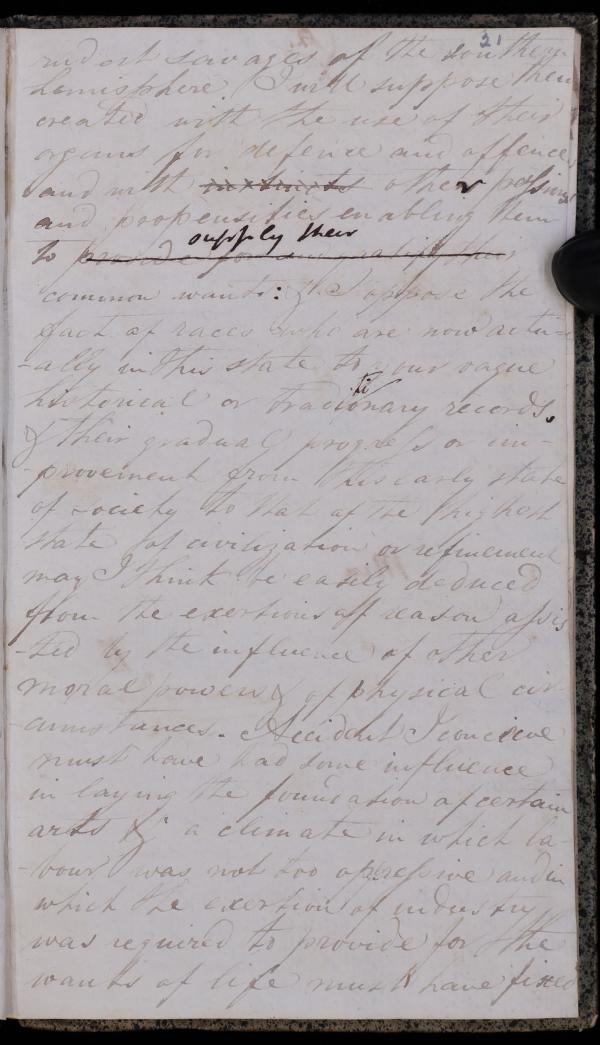 21
rudest savages of the southern
hemisphere. I will suppose them
created with the use of their
organs for defence and offence,
and with instincts other passions
and propensities enabling them
supply their
to provide for and gratify their
common wants: & I oppose the
fact of races who are now actu-
-ally in this state to your vague
historical or traditionary records.
& their gradual progress or im-
-provement from this early state
of society to that of the highest
state of civilization or refinement
may I think be easily deduced
from the exertions of reason assis
-ted by the influence of other
moral powers & of physical cir-
-cumstances. Accident I conceive
must have had some influence
in laying the foundation of certain
arts & a climate in which la-
-bour was not too oppressive and in
which the exertion of industry
was required to provide for the
wants of life must have fixed